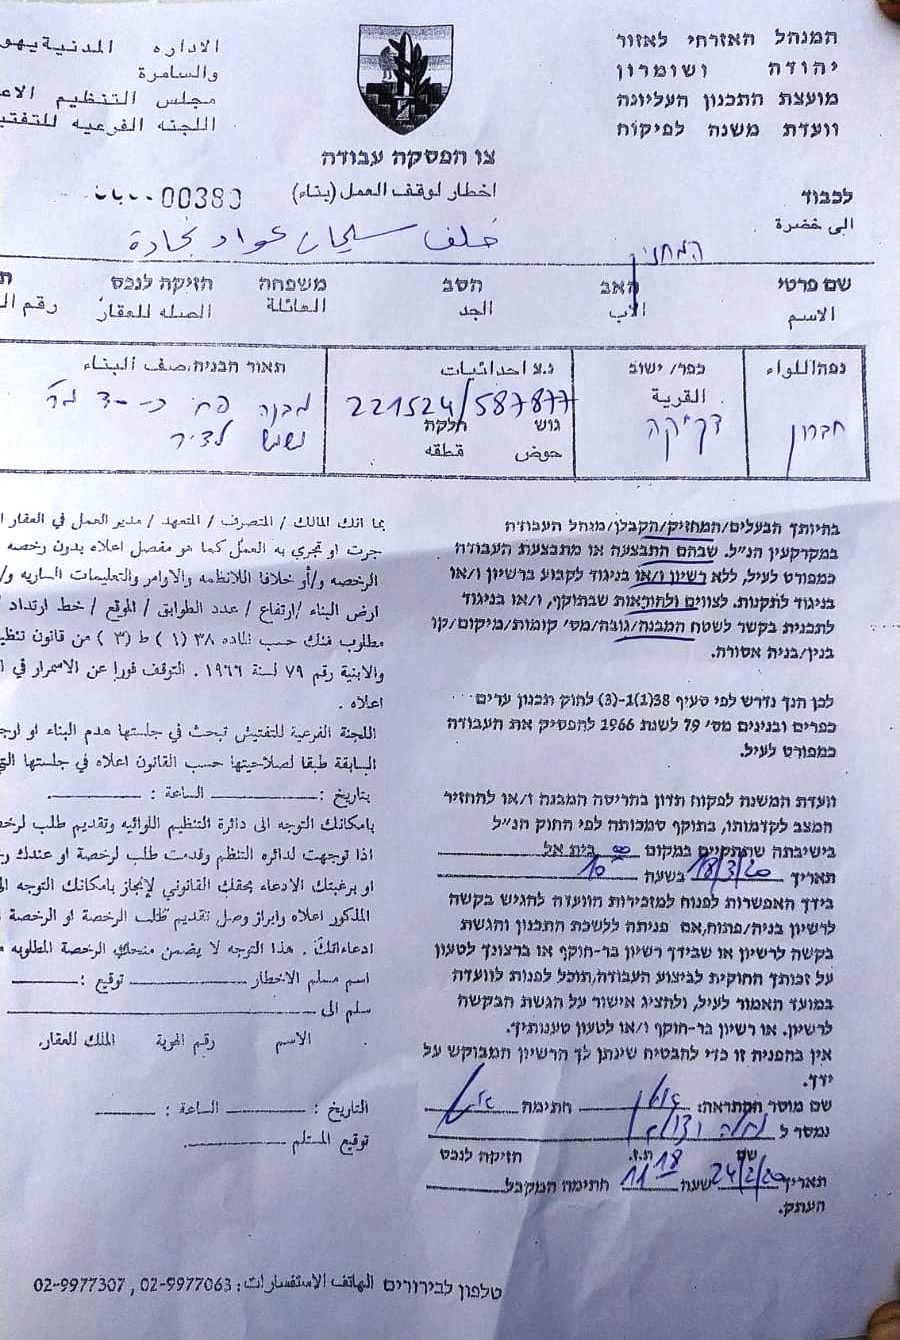 המנהל האזרחי לאזור
יהודה ושומרון
מועצת התכנון העליונה
וועדת משנה לפיקוח
الاداره المدنية يهو
والسامرة
مجلس التنظيم الاع
اللجنه الفرعيه للتفتي
צו הפסקה עבודה
اخطار لوقف العمل (بناء)
00380
לכבוד
الى حضرة
خلف سليمان عواد نجادة
המחזיק
שם פרטי האב הסב משפחה חזיקה לנכס
الاسم الأب الجد العائلة الصله للعقار رقم ال
נפה/اللواء כפר/ ישוב נ.צ احداثيات תאור הבניה.صف البناء
القرية
חברון דקיקה 221524/587877 מבנה פח כ-
גוש חלקה
حوض قطقه
בהיותך הבעלים/המחזיק/הקבלן/מנהל העבודה
במקרקעין הנ"ל. שבהם התבצעה או מתבצעת העבודה
כמפורט לעיל, ללא רשיון ו/או בניגוד לקבוע ברשיון ו/או
בניגוד לתקנות. לצווים ולהוראות שבתוקף, ו/או בניגוד
לתבנית בקשר לשטח המבנה/גובה/מס' קומות/מיקום/קו
בנין/בניה אסורה.
לכן הנך נדרש לפי סעיף 38(1)-(3) לחוק תכנון ערים
כפרים ובנינים מס' 79 לשנת 1966 להפסיק את העבודה
כמפורט לעיל.
וועדת המשנה לפקוח תדון בהריסה המבנה ו/או להחזיר
המצב לקדמותו, בתוקף סמכותה לפי החוק הנ"ל
בישיבתה שתתקיים במקום בית אל
תאריך 18/3/20 בשעה 10
בידך האפשרות לפנות למזכירות הוועדה להגיש בקשה
לרשיון בניה/פתוח,אם פניתה ללשכת התכנון והגשת
בקשה לרשיון או שבידך רשיון בר-תוקף או ברצונך לטעון
על זכותך החוקית לביצוע העבודה,תוכל לפנות לוועדה
במועד האמור לעיל, ולהציג אישור על הגשת הבקשה
לרשיון. או רשיון בר-תוקף ו/או לטעון טענותיך.
אין בהפנית זו כדי להבטיח שינתן לך הרשיון המבוקש על
ידך.
שם מוסר ההתראה: חתימה
נמסר ל
שם ת.ז. חזיקה לנכס
תאריך 24/2/20 שעה 11 18 חתימה המקבל
העתק.
بما انك المالك / المتصرف / المتعهد / مدير العمل في العقار ا
جرت او تجري به العمل كما هو مفصل اعلاه بدون رخصه
الرخصه و/أو خلافا للانظمه والاوامر والتعليمات الساريه و/
ارض البناء /ارتفاع / عدد الطوابق / الموقع / خط ارتداد /
مطلوب منك حسب الماده ٣٨ (١) ط (٣) من قانون تنظي
والابنية رقم ٧٩ لسنة ١٩٦٦ . التوقف فورا عن الاسمرار في ا
اعلاه .
اللجنة الفرعية للتفتيش تبحث في جلستها هدم البناء او ارج
السابقة طبقا لصلاحيتها حسب القانون اعلاه في جلستها التي
بتاريخ : الساعة :
بامكانك التوجه الى دائرة التنظيم اللوائيه وتقديم طلب لرخص
اذا توجهت لدائره التنظم وقدمت طلب لرخصة او عندك رخ
او برغبتك الادعاء بحقك القانوني لإنجاز بامكانك التوجه ال
المذكور اعلاه وابراز وصل تقديم طلب الرخصة او الرخصة
ادعاءاتك . هذا التوجه لا يضمن منحك الرخصة المطلوبه م
اسم مسلم الاخطار توقيع :
سلم الى
الاسم رقم الهوية الملك للعقار.
التاريخ : الساعة :
توقيع المستلم
טלפון לבירורים الهاتف الاستفسارات : 02-9977063 , 02-9977307